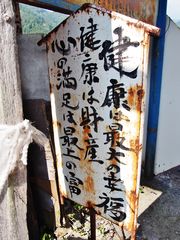 健康は最大の幸福
健康は財産
心の満足は最上の富